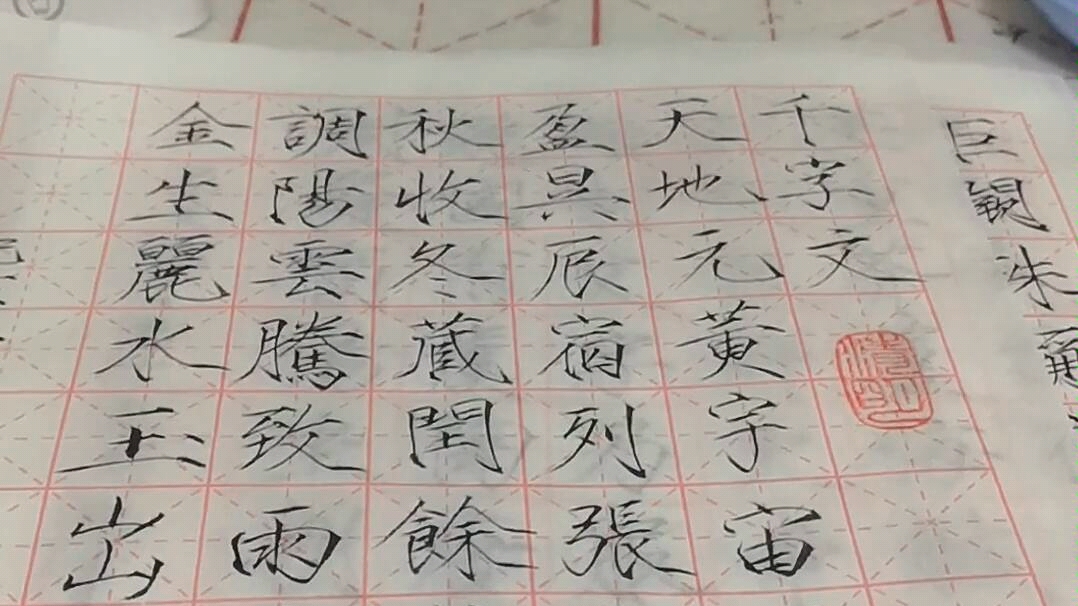 巨闕珠
千字文
天地元黄宇宙
盈昃辰宿列張
秋收冬藏閏餘
調陽雲騰致雨
金生麗水玉出